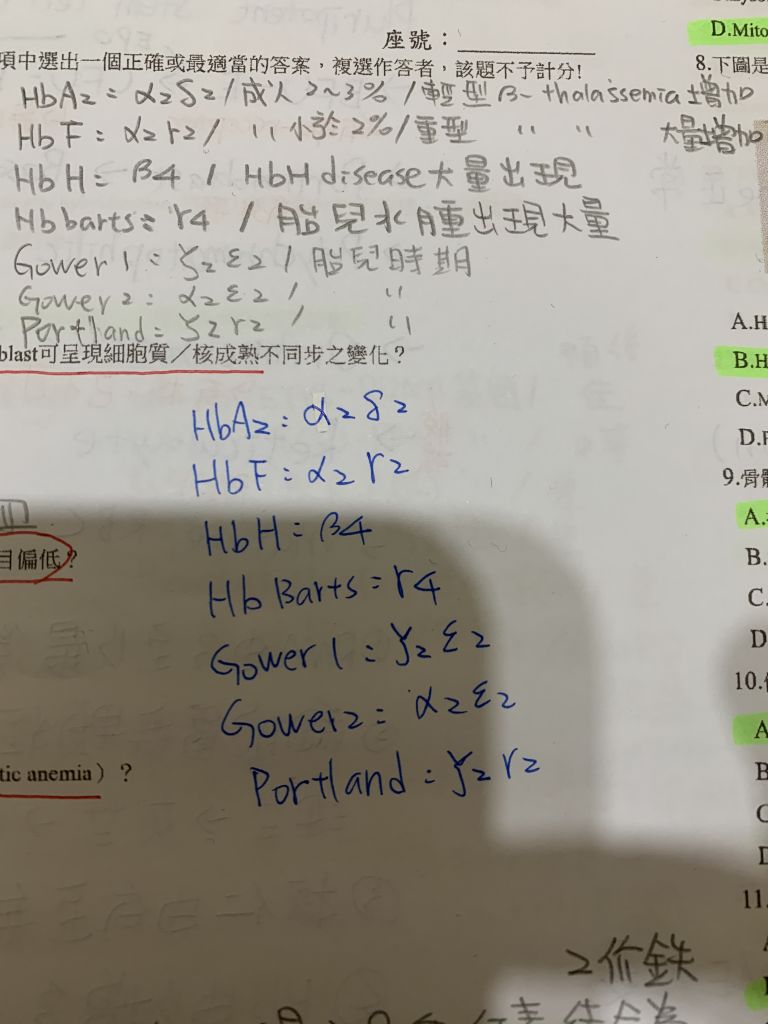 座號：
項中選出一個正確或最適當的答案，複選作答者，該題不予計分!
HbA2 = α2δ2 / 成人 2~3% / 輕型 β- thalassemia 增加
HbF = α2r2 / 〃 小於 2% / 重型 〃 〃 大量增加
HbH = β4 / HbH disease 大量出現
Hb barts = r4 / 胎兒水腫出現大量
Gower 1 : ζ2ε2 / 胎兒時期
Gower 2 : α2ε2 / 〃
Portland = ζ2r2 / 〃
blast可呈現細胞質／核成熟不同步之變化？
HbA2 : α2δ2
HbF : α2r2
HbH : β4
Hb Barts = r4
Gower 1 : ζ2ε2
Gower2 : α2ε2
Portland : ζ2r2
目偏低？
tic anemia）？
2價鉄
D.Mito
8.下圖是
A.H
B.H
C.M
D.F
9.骨髓
A.
B.
C.
D
10.
A
B
C
D
11.